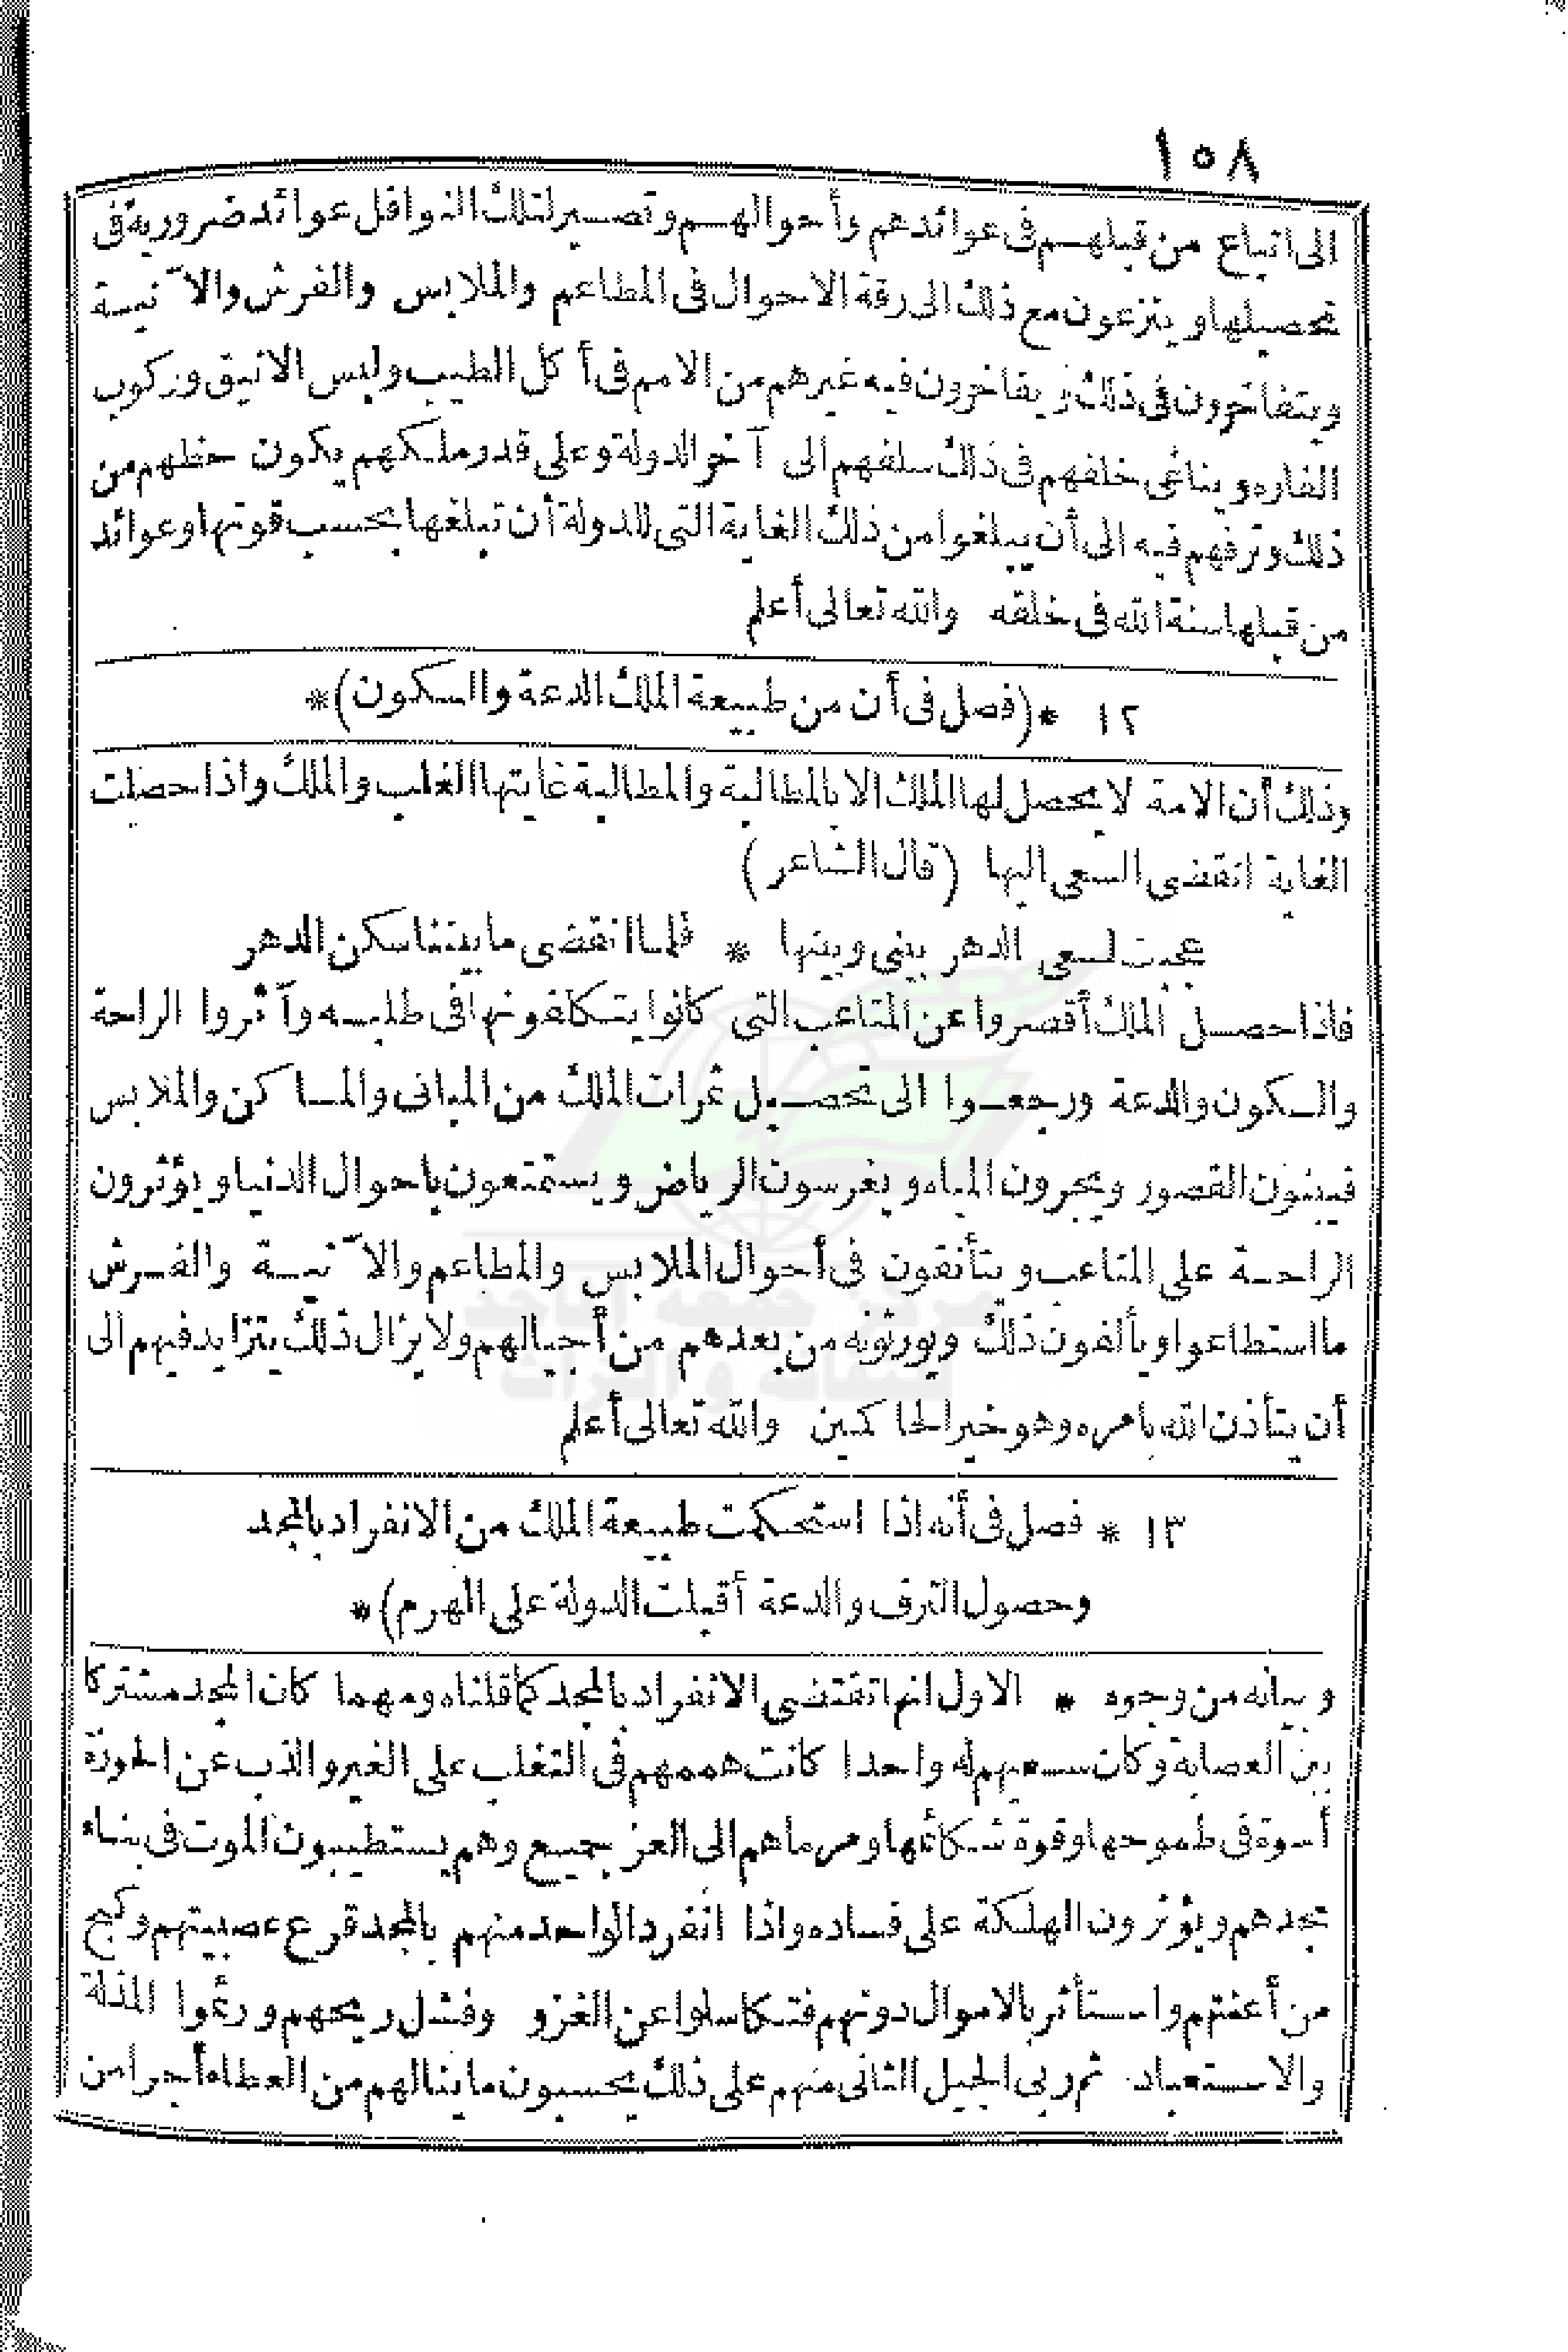 ١٥٨
الى اتباع من قبلهم فى عوائدهم وأحوالهم وتصير لتلك النوافل عوائد ضرورية فى
تحصيلها وينزعون مع ذلك الى رقة الاحوال فى المطاعم والملابس والفرش والآنية
ويتفاخرون فى ذلك ويفاخرون فيه غيرهم من الامم فى أكل الطيب ولبس الانيق وركوب
الفاره ويناغى خلفهم فى ذلك سلفهم الى آخر الدولة وعلى قدر ملكهم يكون حظهم من
ذلك وترفهم فيه الى أن يبلغوا من ذلك الغاية التى للدولة أن تبلغها بحسب قوتها وعوائد
من قبلها سنة الله فى خلقه والله تعالى أعلم
١٢ *(فصل فى أن من طبيعة الملك الدعة والسكون)*
وذلك أن الامة لا يحصل لها الملك الا بالمطالبة والمطالبة غايتها الغلب والملك واذا حصلت
الغاية انقضى السعى اليها (قال الشاعر)
عجبت لسعى الدهر بينى وبينها * فلما انقضى ما بيننا سكن الدهر
فاذا حصل الملك أقصروا عن المتاعب التى كانوا يتكلفونها فى طلبه وآثروا الراحة
والسكون والدعة ورجعوا الى تحصيل ثمرات الملك من المبانى والمساكن والملابس
فيبنون القصور ويجرون المياه ويغرسون الرياض ويستمتعون باحوال الدنيا ويؤثرون
الراحة على المتاعب ويتأنقون فى أحوال الملابس والمطاعم والآنية والفرش
ما استطاعوا ويألفون ذلك ويورثونه من بعدهم من أجيالهم ولا يزال ذلك يتزايد فيهم الى
أن يتأذن الله بامره وهو خير الحاكمين والله تعالى أعلم
١٣ * فصل فى أنه اذا استحكمت طبيعة الملك من الانفراد بالمجد
وحصول الترف والدعة أقبلت الدولة على الهرم)*
وبيانه من وجوه * الاول انها تقتضى الانفراد بالمجد كما قلناه ومهما كان المجد مشتركا
بين العصابة وكان سعيهم له واحدا كانت هممهم فى التغلب على الغير والذب عن الحوزة
أسوة فى طموحها وقوة شكائمها ومرماهم الى العز جميع وهم يستطيبون الموت فى بناء
مجدهم ويؤثرون الهلكة على فساده واذا انفرد الواحد منهم بالمجد قرع عصبيتهم وكبح
من أعنتهم واستأثر بالاموال دونهم فتكاسلوا عن الغزو وفشل ريحهم ورئموا المذلة
والاستعباد ثم ربى الجيل الثانى منهم على ذلك يحسبون ما ينالهم من العطاء أجرا من
مركز جمعة الماجد
للثقافة و التراث